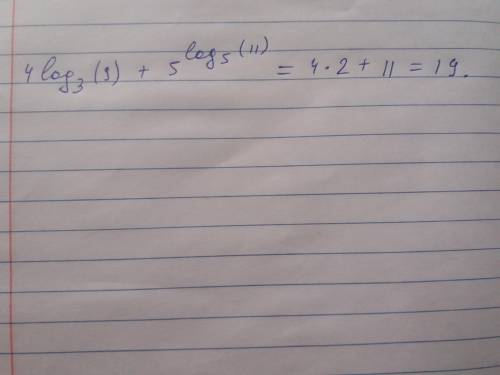 4log₃(9) + 5^log₅(11) = 4·2 + 11 = 19.